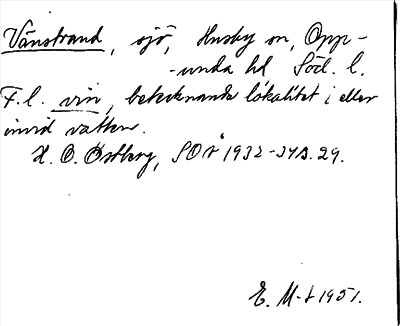 Vånstrand, sjö, Husby sn, Opp-
-unda hd Söd. l.
F. l. vin, betecknande lokalitet i eller
invid vatten.
H. O. Östberg, SOÅ 1932-34 s. 29.
E. M-t 1951.